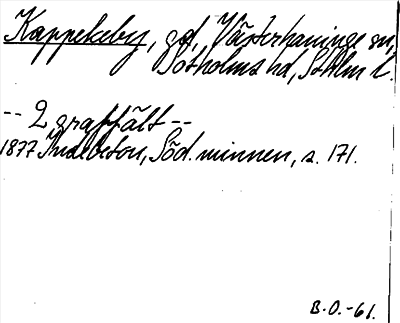 Kappekeby, gd, Västerhaninge sn,
Sotholms hd, Sthlm l.
-- 2 gravfält --
1877 Ihrsebston, Söd. minnen, s. 171.
B.O.-61.